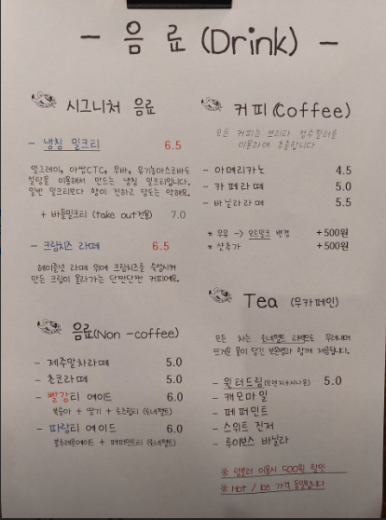 - 음 료 (Drink) -
시그니처 음료
- 냉침 밀크티 6.5
얼그레이, 아쌈CTC, 우바, 유기농마스코바도
설탕을 이용해서 만드는 냉침 밀크티입니다.
일반 밀크티보다 향이 진하고 당도는 약해요.
+ 바틀밀크티 (take out전용) 7.0
- 크림치즈 라떼 6.5
헤이즐넛 라떼 위에 크림치즈를
만든 크림이 올라가는 단짠단짠 커피에요.
음료(Non-coffee)
- 제주말차라떼 5.0
- 초코라떼 5.0
- 빨강티 에이드 6.0
복숭아 + 딸기 +
- 파랑티 에이드 6.0
블루레몬에이드 + 페퍼민트티
커피(Coffee)
모든 커피는 브리타 정수필터를
이용하여 추출합니다
- 아메리카노 4.5
- 카페라떼 5.0
- 바닐라라떼 5.5
* 우유 → 오트밀크 변경 +500원
* 샷추가 +500원
Tea (무카페인)
모든 차는 우려내어
뜨거운 물이 담긴 보온병과 함께 제공됩니다.
- 윈터드림 5.0
- 캐모마일
- 페퍼민트
- 스위트 진저
- 루이보스 바닐라
※ 텀블러 이용시 500원 할인
※ Hot / Ice 가격 동일합니다